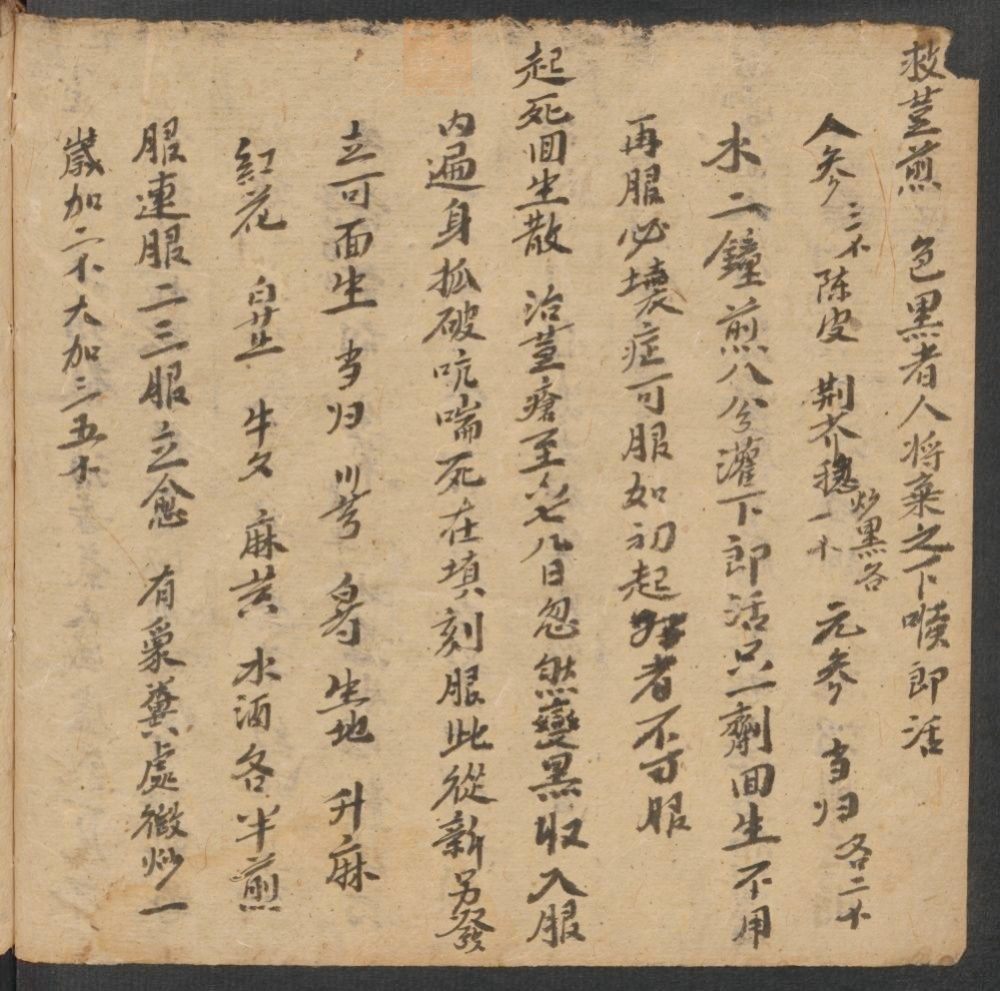 救荳煎 色黑者人將棄之下喉即活
人參三个 陈皮 荆芥穗一个炒黑各 元參 当归各二个
水二鐘煎八分灌下即活只一劑回生不用
再服必壞症可服如初起 者不可服
起死回生散 治荳瘡至六七八日忽然變黑収入服
内遍身抓破吭喘死在填刻服此從新另發
立可面生 当归 川芎 白芍 生地 升麻
紅花 白芷 牛夕 麻黄 水酒各半煎
服連服二三服立愈 有象糞處微炒一
歲加二个大加三五个